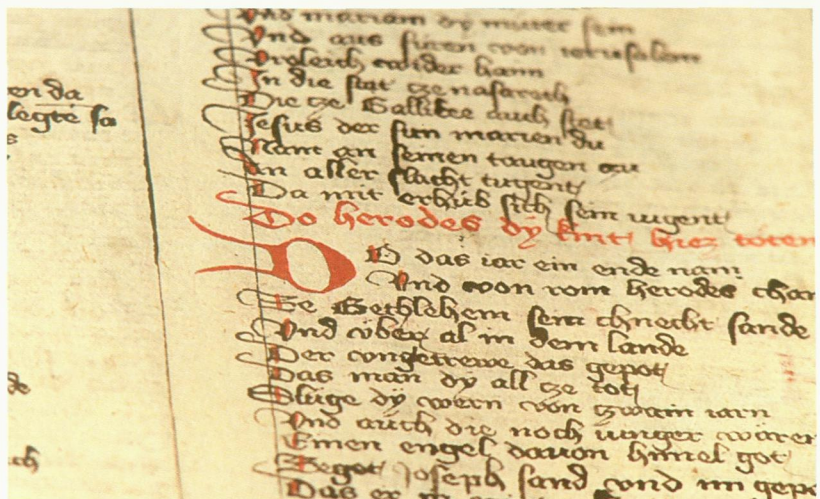 en da
legte so
Vnd mariam dy muter sein
Vnd aus furen von ierusalem
Vroleich wider haim
In die stat tze nasareth
Die tze Gallilee auch stet
Jesus der sun marien du
Nam an seinen taugen zu
An aller slacht tugent
Da mit erhub sich sein iugent
Do herodes dy kint hiez toten
Do das iar ein ende nam
Vnd von rom herodes cham
Ze Bethlehem sein chnecht sande
Vnd vber al in dem lande
Der vngetrewe das gepot
Das man dy all tze tot
Sluge dy wern von tzwain iarn
Vnd auch die noch iunger waren
Einen engel davon himel got
Joseph sand vnd im gepo
Das er
ch